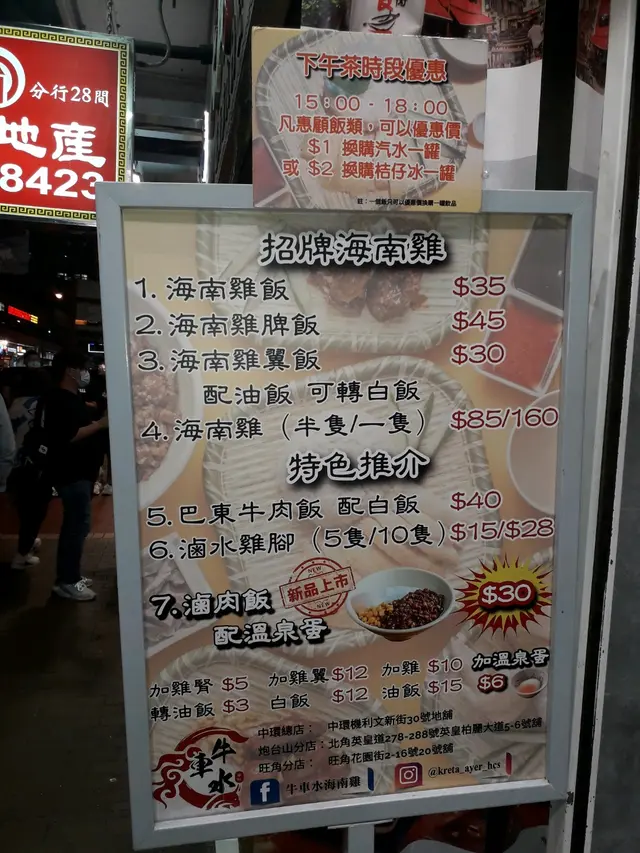 分行28間
地產
8423
下午茶時段優惠
15:00 - 18:00
凡惠顧飯類，可以優惠價
$1 換購汽水一罐
或 $2 換購桔仔冰一罐
註：一個飯只可以優惠價換購一罐飲品
招牌海南雞
1. 海南雞飯 $35
2. 海南雞脾飯 $45
3. 海南雞翼飯 $30
配油飯 可轉白飯
4. 海南雞（半隻/一隻） $85/160
特色推介
5. 巴東牛肉飯 配白飯 $40
6. 滷水雞腳（5隻/10隻）$15/$28
NEW
新品上市
NEW
7. 滷肉飯 $30
配溫泉蛋
加雞腎 $5 加雞翼 $12 加雞 $10 加溫泉蛋 $6
轉油飯 $3 白飯 $12 油飯 $15
中環總店： 中環機利文新街30號地舖
炮台山分店：北角英皇道278-288號英皇柏麗大道5-6號舖
旺角分店： 旺角花園街2-16號20號舖
牛車水
牛車水海南雞
@kreta_ayer_hcs